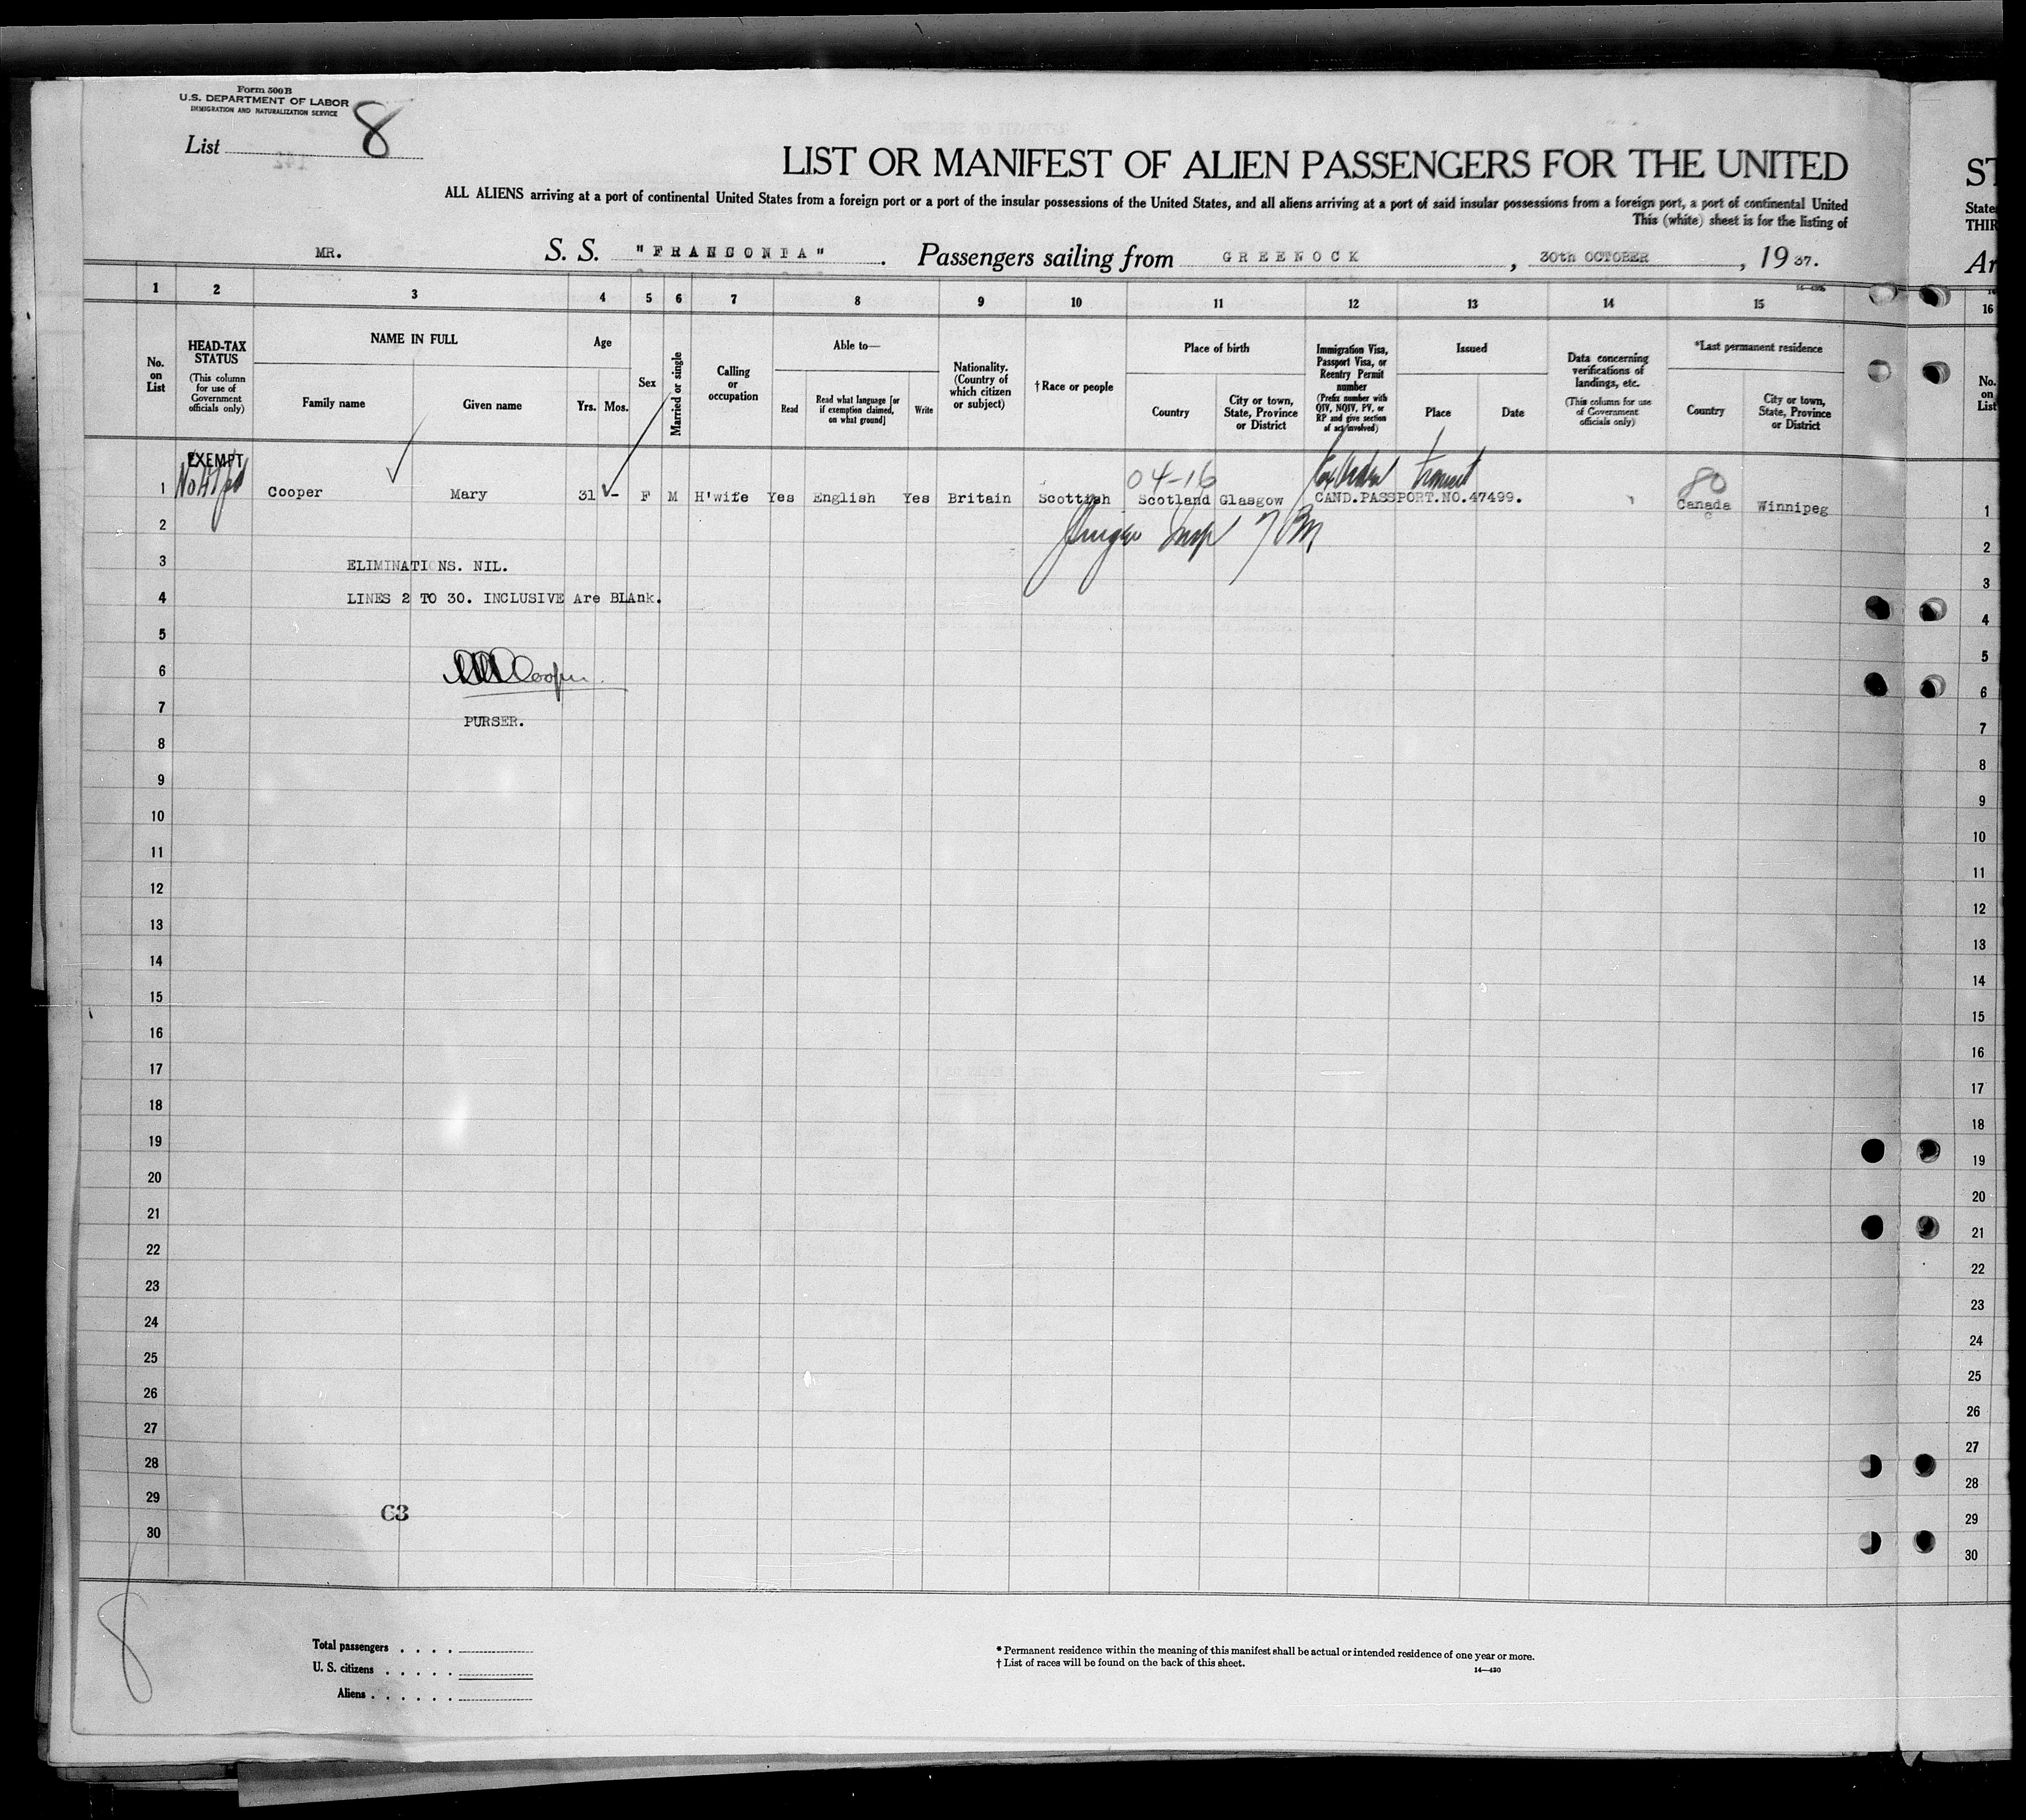 Form 500B
U.S. DEPARTMENT OF LABOR
IMMIGRATION AND NATURALIZATION SERVICE
List 8
LIST OR MANIFEST OF ALIEN PASSENGERS FOR THE UNITED
ALL ALIENS arriving at a port of continental United States from a foreign port or a port of the insular possessions of the United States, and all aliens arriving at a port of said insular possessions from a foreign port, a port of continental United
This (white) sheet is for the listing of
MR. S. S. "FRANCONIA". Passengers sailing from GREENOCK, 30th OCTOBER, 1937.
ST
States
THIR
Ar
1 2 3 4 5 6 7 8 9 10 11 12 13 14 15 16
No. on List
HEAD-TAX STATUS
(This column for use of Government officials only)
NAME IN FULL
Family name
Given name
Age
Yrs. Mos.
Sex
Married or single
Calling or occupation
Able to—
Read
Read what language [or if exemption claimed, on what ground]
Write
Nationality. (Country of which citizen or subject)
† Race or people
Place of birth
Country
City or town, State, Province or District
Immigration Visa, Passport Visa, or Reentry Permit number
(Prefix number with QIV, NQIV, PV, or RP and give section of act involved)
Issued
Place
Date
Data concerning verifications of landings, etc.
(This column for use of Government officials only)
*Last permanent residence
Country
City or town, State, Province or District
No. on List
EXEMPT
04-16
transit
80
1 Cooper Mary 31 - F M H'wife Yes English Yes Britain Scottish Scotland Glasgow CAND.PASSPORT.NO.47499. Canada Winnipeg 1
c
2 2
3 ELIMINATIONS. NIL. 3
4 LINES 2 TO 30. INCLUSIVE Are BLAnk. 4
5 5
6 Cooper. 6
7 PURSER. 7
8 8
9 9
10 10
11 11
12 12
13 13
14 14
15 15
16 16
17 17
18 18
19 19
20 20
21 21
22 22
23 23
24 24
25 25
26 26
27 27
28 28
29 29
63
30 30
8
Total passengers . . . .
U. S. citizens . . . . .
Aliens . . . . . .
* Permanent residence within the meaning of this manifest shall be actual or intended residence of one year or more.
† List of races will be found on the back of this sheet.
14—430